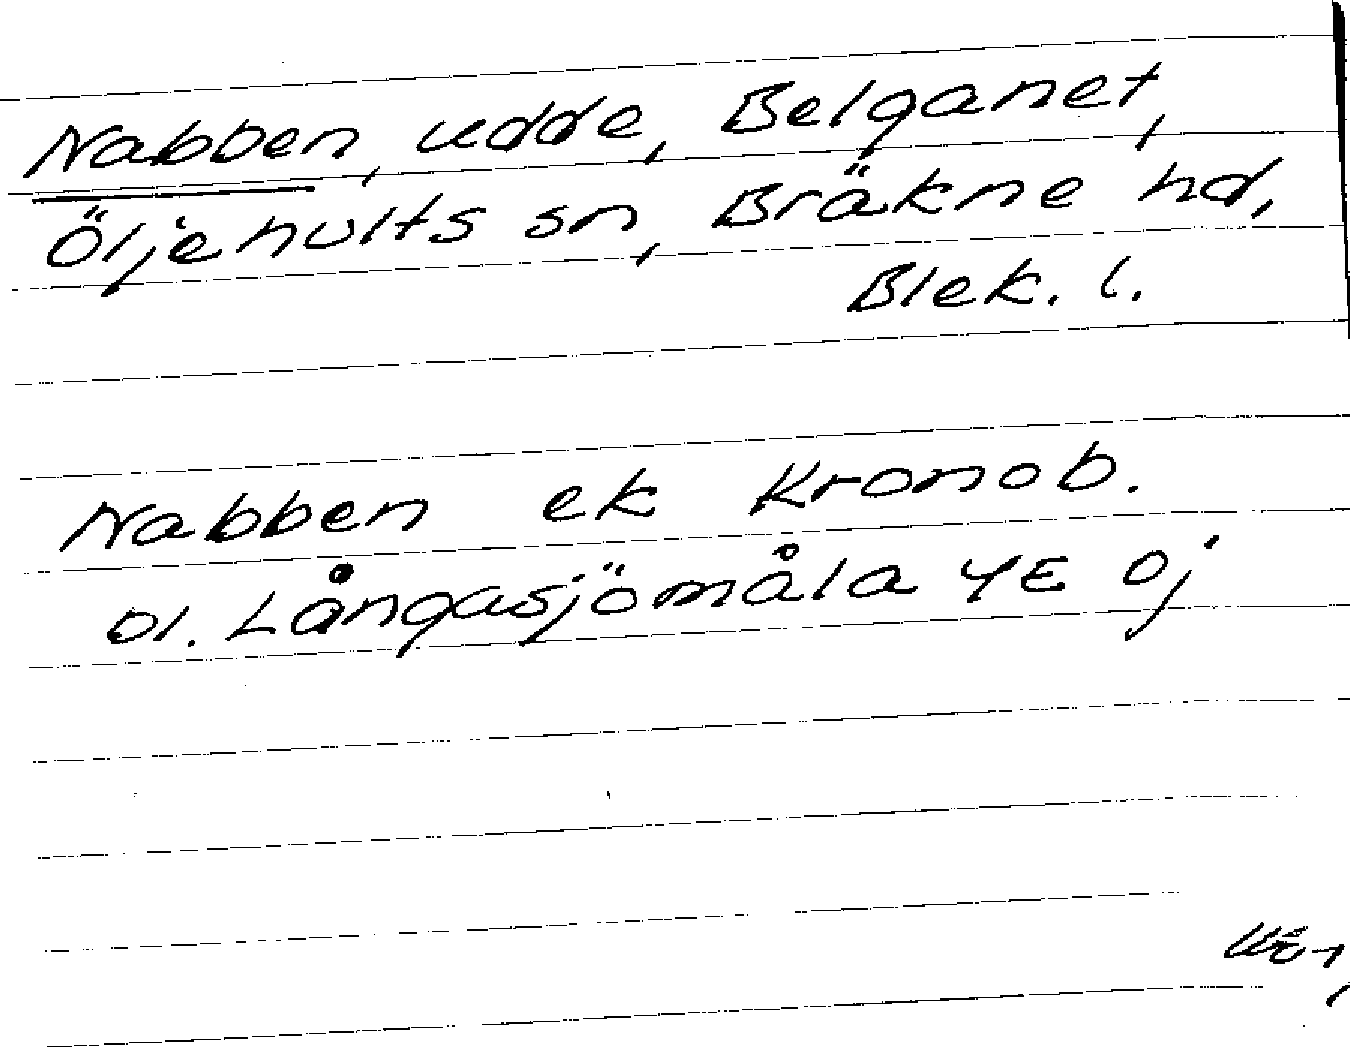 Nabben, udde, Belganet,
Öljehults sn, Bräkne hd,
Blek. l.
Nabben ek Kronob.
Dl. Långasjömåla 4E Oj